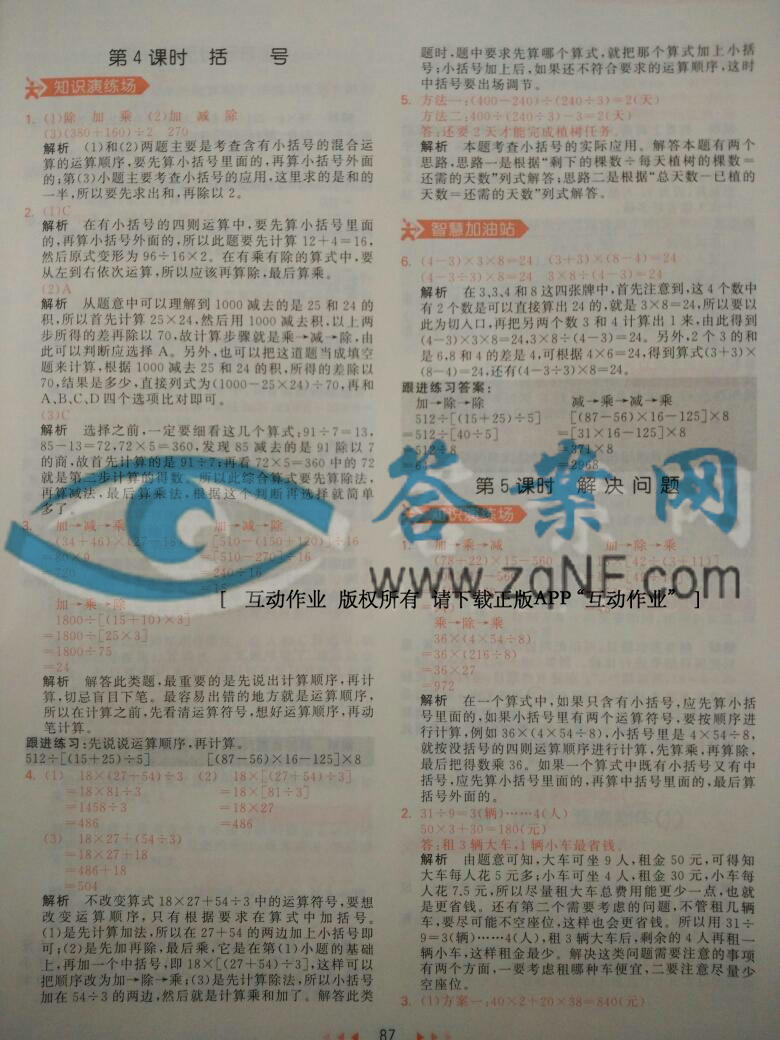 第4课时 括 号
知识演练场
1. (1)除 加 乘 (2)加 减 除
(3)(380+160)÷2 270
解析 (1)和(2)两题主要是考查含有小括号的混合运
算的运算顺序,要先算小括号里面的,再算小括号外面
的;第(3)小题主要考查小括号的应用,这里求的是和的
一半,所以要先求出和,再除以2。
2. (1)C
解析 在有小括号的四则运算中,要先算小括号里面
的,再算小括号外面的,所以此题要先计算12+4=16,
然后原式变形为96÷16×2。在有乘有除的算式中,要
从左到右依次运算,所以应该再算除,最后算乘。
(2)A
解析 从题意中可以理解到1000减去的是25和24的
积,所以首先计算25×24,然后用1000减去积,以上两
步所得的差再除以70,故计算步骤就是乘→减→除,由
此可以判断应选择A。另外,也可以把这道题当成填空
题来计算,根据1000减去25和24的积,所得的差除以
70,结果是多少,直接列式为(1000-25×24)÷70,再和
A、B、C、D四个选项比对即可。
(3)C
解析 选择之前,一定要细看这几个算式:91÷7=13,
85-13=72,72×5=360,发现85减去的是91除以7
的商,故首先计算的是91÷7;再看72×5=360中的72
就是第二步计算的得数。所以此综合算式要先算除法,
再算减法,最后算乘法,根据这个判断再选择就简单
多了。
3. 加→减→乘 加→减→除
(34+46)×(27-18) [510-(150+120)]÷16
=80×9 =[510-270]÷16
=720 =240÷16
加→乘→除
1800÷[(15+10)×3]
=1800÷[25×3]
=1800÷75
=24
解析 解答此类题,最重要的是先说出计算顺序,再计
算,切忌盲目下笔。最容易出错的地方就是运算顺序,
所以在计算之前,先看清运算符号,想好运算顺序,再动
笔计算。
跟进练习:先说说运算顺序,再计算。
512÷[(15+25)÷5] [(87-56)×16-125]×8
4. (1) 18×(27+54)÷3 (2) 18×[(27+54)÷3]
=18×81÷3 =18×[81÷3]
=1458÷3 =18×27
=486 =486
(3) 18×27+(54÷3)
=18×27+18
=486+18
=504
解析 不改变算式18×27+54÷3中的运算符号,要想
改变运算顺序,只有根据要求在算式中加括号。
(1)是先计算加法,所以在27+54的两边加上小括号即
可;(2)是先加再除,最后乘,它是在第(1)小题的基础
上,再加一个中括号,即18×[(27+54)÷3],这样可以
把顺序改为加→除→乘;(3)是先计算除法,所以小括号
加在54÷3的两边,然后就是计算乘和加了。解答此类
题时,题中要求先算哪个算式,就把那个算式加上小括
号;小括号加上后,如果还不符合要求的运算顺序,这时
中括号要出场调节。
5. 方法一:(400-240)÷(240÷3)=2(天)
方法二:400÷(240÷3)-3=2(天)
答:还要2天才能完成植树任务。
解析 本题考查小括号的实际应用。解答本题有两个
思路,思路一是根据“剩下的棵数÷每天植树的棵数=
还需的天数”列式解答;思路二是根据“总天数-已植的
天数=还需的天数”列式解答。
智慧加油站
6. (4-3)×3×8=24 (3+3)×(8-4)=24
(4-3÷3)×8=24 3×8÷(4-3)=24
解析 在3、3、4和8这四张牌中,首先注意到,这4个数中
有2个数是可以直接算出24的,就是3×8=24,所以要以
此为切入口,再把另两个数3和4计算出1来,由此得到
(4-3)×3×8=24,3×8÷(4-3)=24。另外,2个3的和
是6,8和4的差是4,可根据4×6=24,得到算式(3+3)×
(8-4)=24,还有(4-3÷3)×8=24。
跟进练习答案:
加→除→除 减→乘→减→乘
512÷[(15+25)÷5] [(87-56)×16-125]×8
=512÷[40÷5] =[31×16-125]×8
=512÷8 =371×8
=64 =2968
第5课时 解决问题
知识演练场
1. 加→乘→减 加→除→乘
(78+22)×15-560 42÷(3+11)
答案网
www.zqNF.com
[ 互动作业 版权所有 请下载正版APP“互动作业” ]
乘→除→乘
36×(4×54÷8)
=36×(216÷8)
=36×27
=972
解析 在一个算式中,如果只含有小括号,应先算小括
号里面的,如果小括号里有两个运算符号,要按顺序进
行计算,例如36×(4×54÷8),小括号里是4×54÷8,
就按没括号的四则运算顺序进行计算,先算乘,再算除,
最后把得数乘36。如果一个算式中既有小括号又有中
括号,应先算小括号里面的,再算中括号里面的,最后算
括号外面的。
2. 31÷9=3(辆)……4(人)
50×3+30=180(元)
答:租3辆大车,1辆小车最省钱。
解析 由题意可知,大车可坐9人,租金50元,可得知
大车每人花5元多;小车可坐4人,租金30元,小车每
人花7.5元,所以尽量租大车总费用能更少一点,也就
是更省钱。还有第二个需要考虑的问题,不管租几辆
车,要尽可能不空座位,这样也会更省钱。所以用31÷
9=3(辆)……4(人),租3辆大车后,剩余的4人再租一
辆小车,这样租金最少。解决这类问题需要注意的事项
有两个方面,一要考虑租哪种车便宜,二要注意尽量少
空座位。
3. (1)方案一:40×2+20×38=840(元)
87